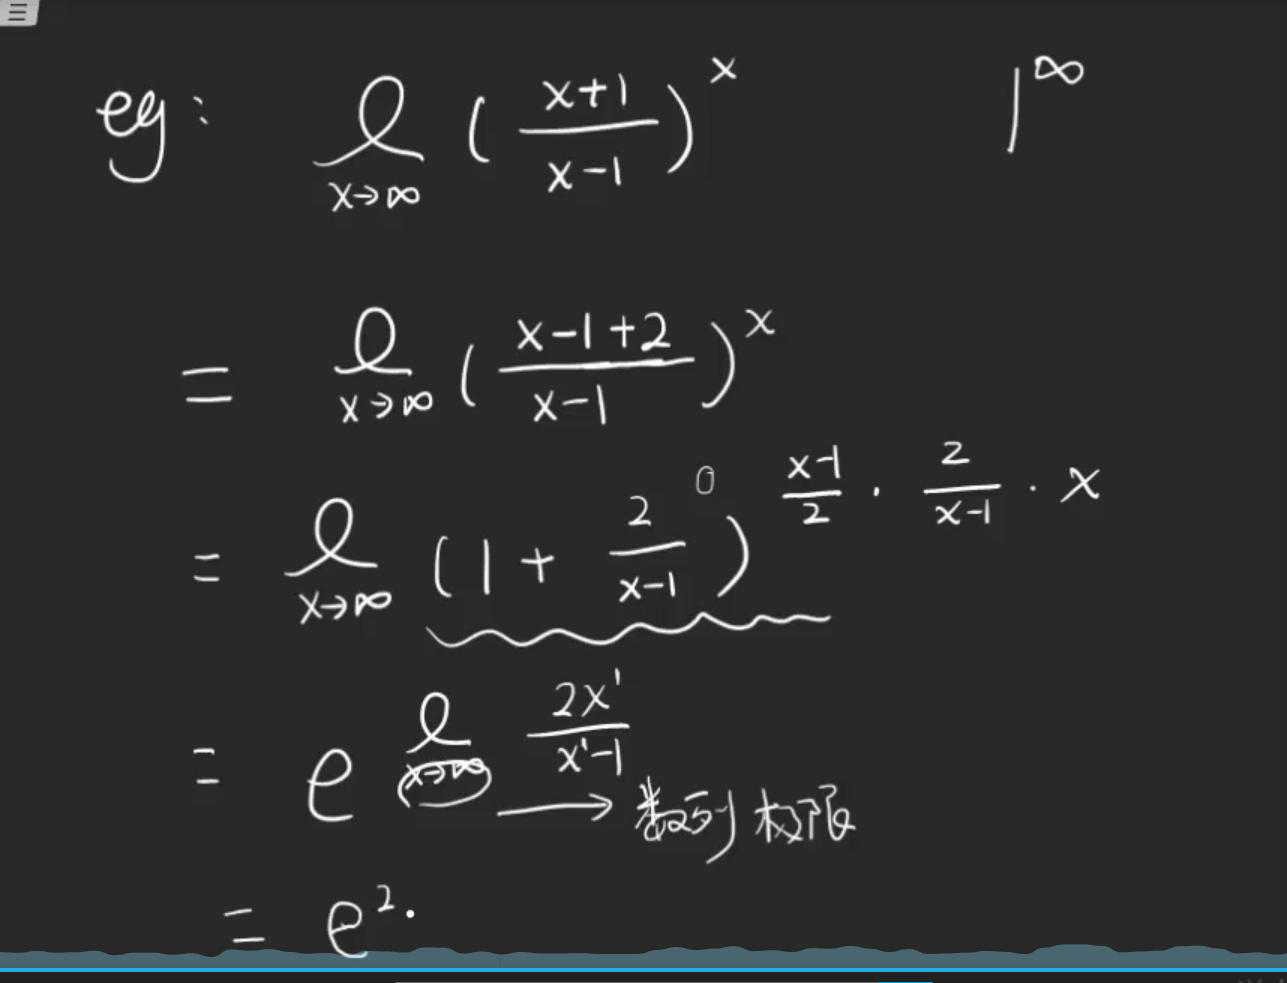 eg: lim x→∞ (x+1/x-1)^x 1^∞
= lim x→∞ (x-1+2/x-1)^x
= lim x→∞ (1 + 2/x-1)^(x-1/2 · 2/x-1 · x) 0
= e^(lim x→∞ 2x'/x'-1) → 数列 极限
= e^2.